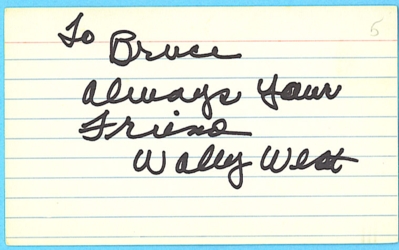 To
Bruce
5
Always Your
Friend
Wally West